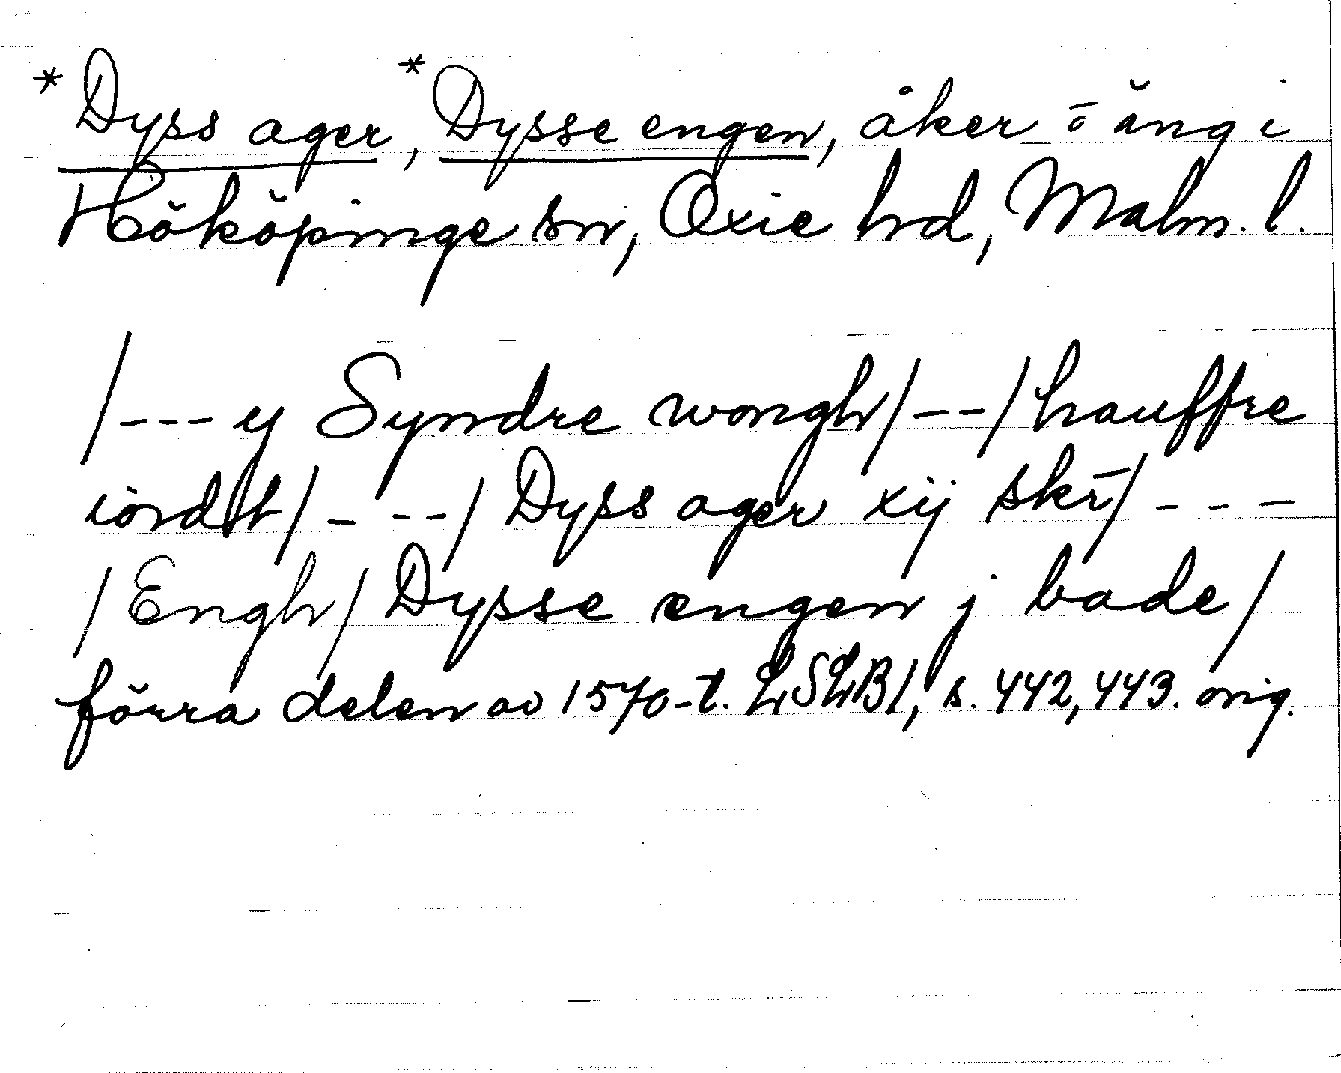 *Dyss ager, *Dysse engen, åker ō äng i
Hököpinge sn, Oxie hd, Malm. l.
/---y Syndre wongh/--/hauffre
iördtt/- --/ Dyss ager xij skr̄/ - - -
/Engh/ Dysse engen j bade/
förra delen av 1570-t. LSLB1, s. 442, 443. orig.